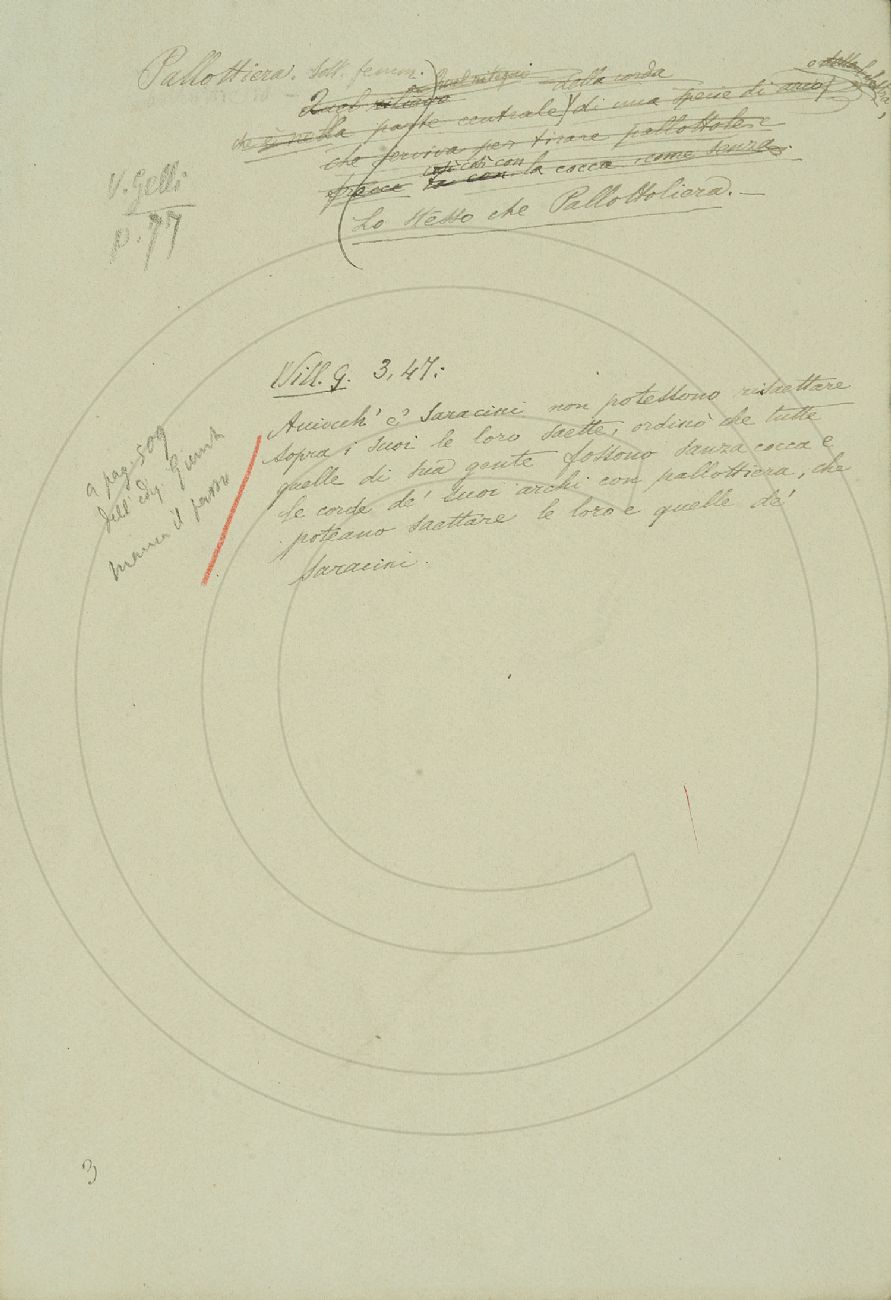 Pallottiera. Sost. femm.
Quel ritegno
della corda
o dalla balestra,
che è nella parte centrale di una specie di arco,
che serviva per tirare pallottole, e
frecce così con la cocca, come senza.
Lo stesso che Pallottoliera. —
V. Gelli
p. 77
Vill. G. 3, 47:
Acciocch' e' Saracini non potessono risaettare
sopra i suoi le loro saette, ordinò che tutte
quelle di sua gente fossono sanza cocca e
le corde de' suoi archi con pallottiera, che
poteano saettare le loro e quelle de'
Saracini.
a pag. 509
dell' ediz. Giunti
manca il passo
3